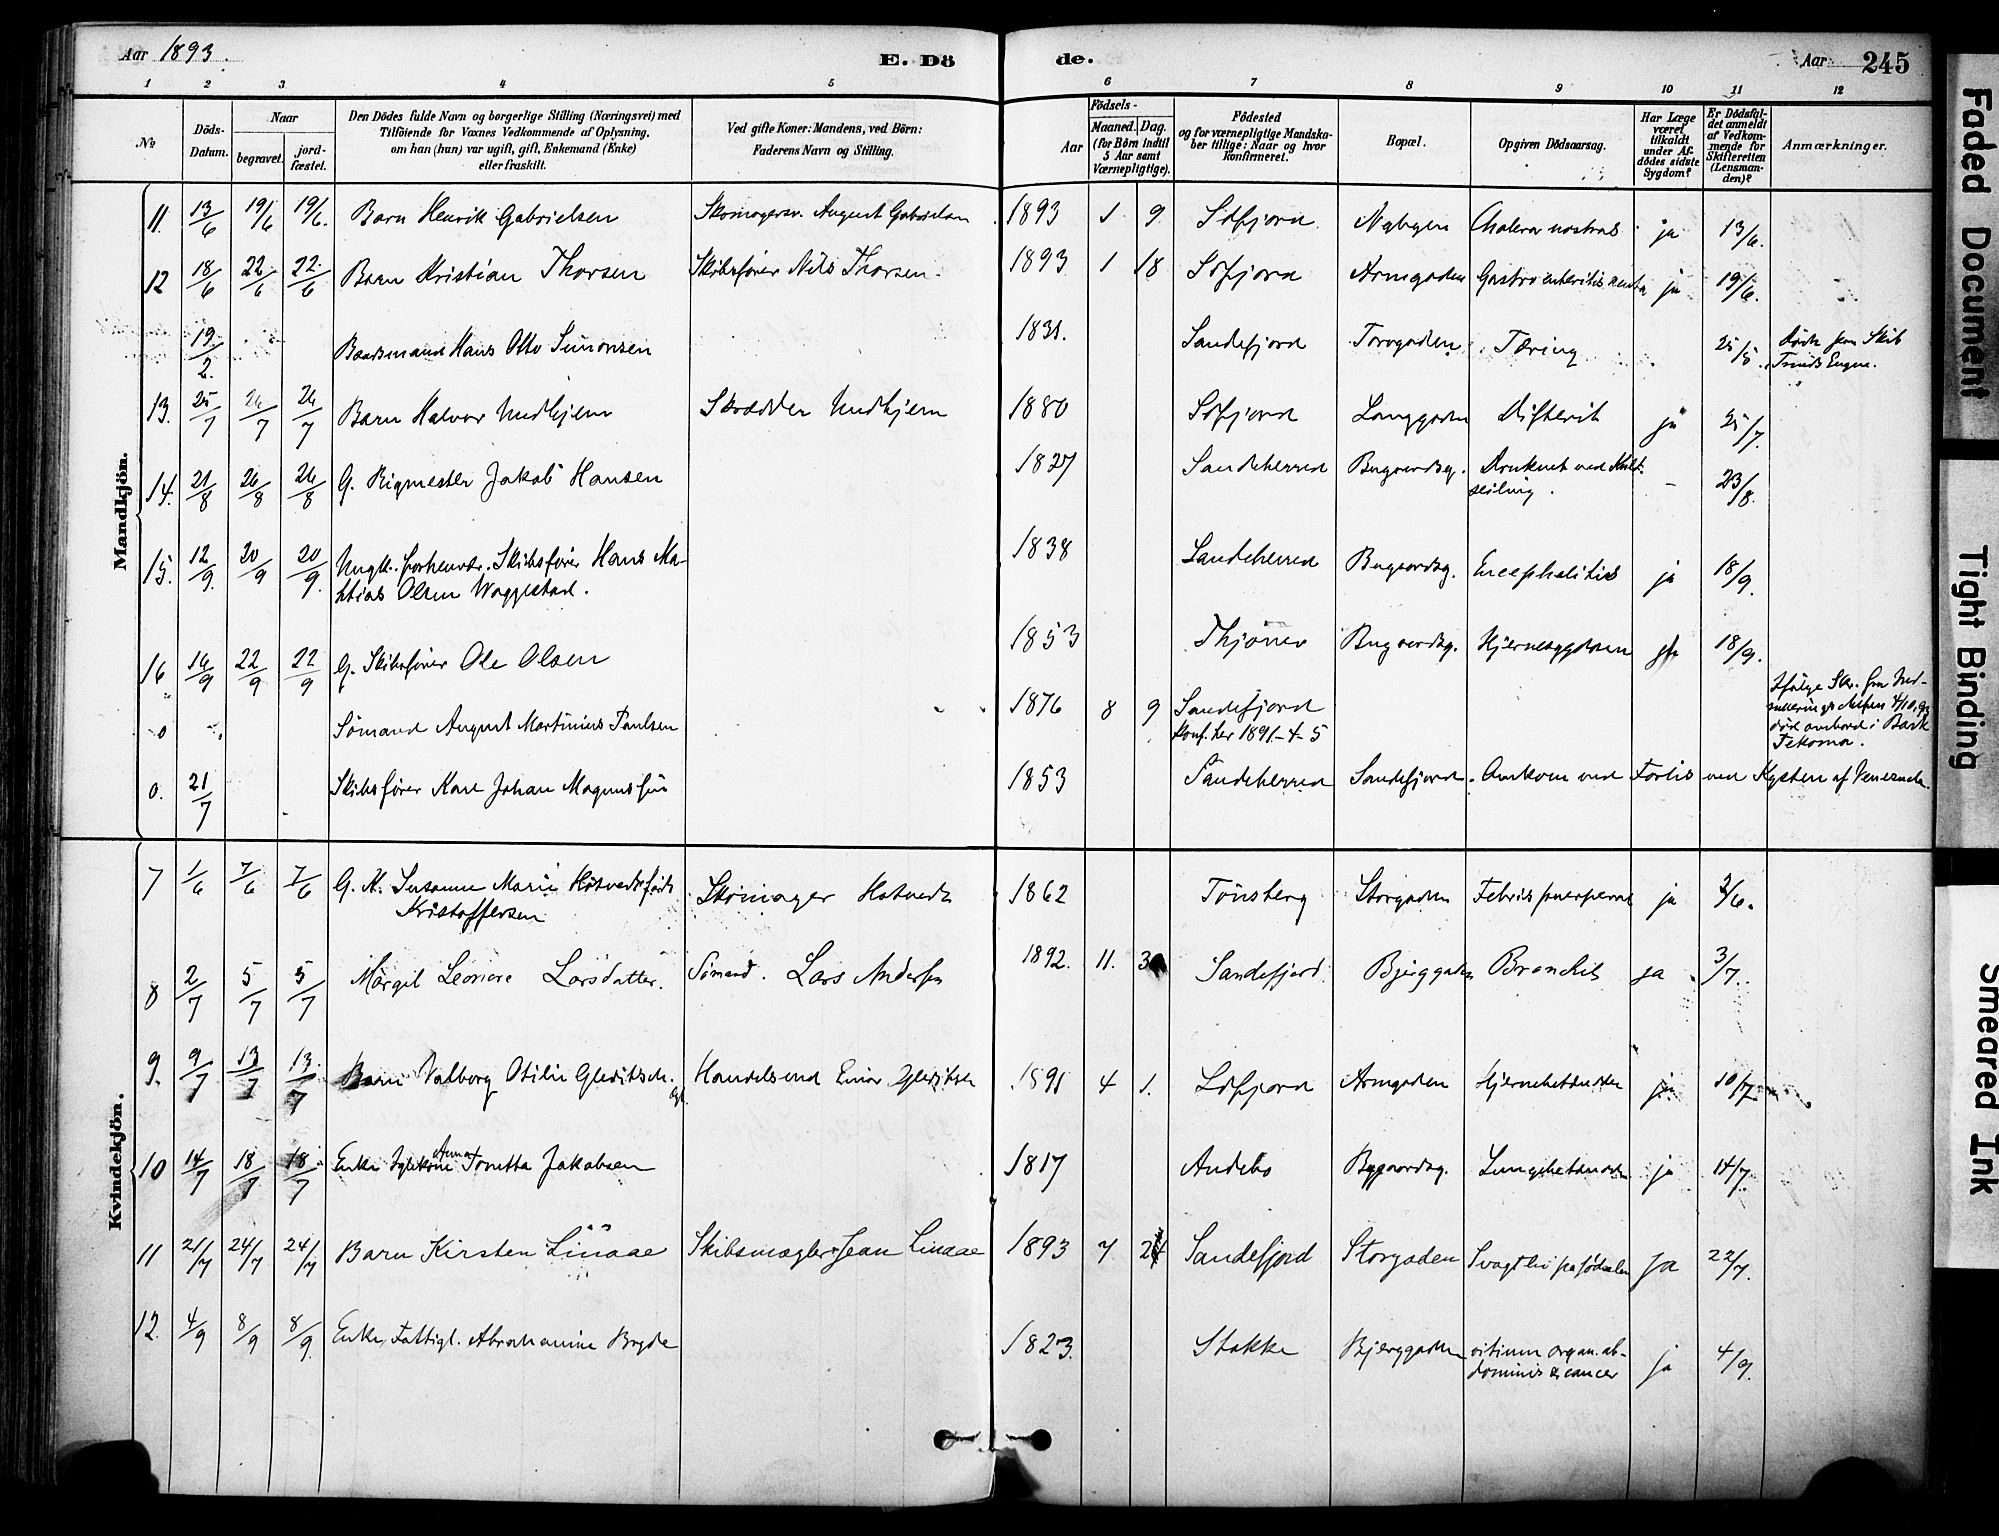 Aar 1893. E. Dö de. Aar 245
1 2 3 4 5 6 7 8 9 10 11 12
No
Döds-Datum.
Naar
begravet.
jordfæstet.
Den Dödes fulde Navn og borgerlige Stilling (Næringsvei) med
Tilföiende for Voxnes Vedkommende af Oplysning,
om han (hun) var ugift, gift, Enkemand (Enke)
eller fraskilt.
Ved gifte Koner: Mandens, ved Börn:
Faderens Navn og Stilling.
Födsels-
Aar
Maaned. Dag.
(for Börn indtil
5 Aar samt
Værnepligtige).
Födested
og for værnepligtige Mandskaber
tillige: Naar og hvor
konfirmeret.
Bopæl.
Opgiven Dödsaarsag.
Har Læge
været
tilkaldt
under Afdödes
sidste
Sygdom?
Er Dödsfaldet
anmeldt
af Vedkommende
for
Skifteretten
(Lensmanden)?
Anmærkninger.
Mandkjön.
11. 13/6 19/6 19/6. Barn Henrik Gabrielsen Skomagersv. August Gabrielsen 1893 1 9 Sdfjord Nybyen Cholera nostras ja 13/6.
12 18/6 22/6 22/6 Barn Kristian Thorsen Skibsfører Nils Thorsen. 1893 1 18 Sdfjord Armgaden Gastroenteritis acuta ja 19/6.
19/2. Baadsmand Hans Otto Simonsen 1831. Sandefjord Torvgaden Tæring 25/5. Døde paa Skib
13. 25/7 26/7 26/7 Barn Halvor Undhjem Skrædder Undhjem 1880 Sdfjord Langgaden Difterit ja 25/7.
14. 21/8 26/8 26/8 G. Rigmester Jakob Hansen 1827 Sandeherred Bugaardsg. Druknet ved
seiling. – 23/8.
15. 12/9 20/9 20/9. Ungk. forhenvær. Skibsfører Hans Ma-
thias Olsen Waggestad. 1838 Sandeherred Bugaardsg. Encephalitis ja 18/9.
16 16/9 22/9 22/9 G. Skibsfører Ole Olsen 1853 Thjømø Bugaardsg. Hjernesygdom ja 18/9.
0 Sømand August Martinius Paulsen 1876 8 9 Sandefjord
Konf. her 1891-4-5
Ifølge Skr. fra
død ombord i Bark
Tekoma.
0. 21/7 Skibsfører Karl Johan Magnussen 1853 Sandeherred Sandefjord. Omkom ved Forlis ved Kysten af Venezuela.
Kvindekjön.
7 1/6 7/6 7/6 G. K. Susanne Marie Hotvedt født
Kristoffersen Skomager Hotvedt 1862 Tønsberg Storgaden Febris puerperal ja 3/6.
8 2/7 5/7 5/7 Margit Leonore Larsdatter. Sømand. Lars Andersen 1892. 11. 3 Sandefjord. Bjerggaden Bronchit ja 3/7.
9. 9/7 13/7 13/7 Barn Valborg Otilie Gleditsch. Handelsmd Einar Gleditsch 1891 4 1. Sdfjord Armgaden Hjernebetændelse ja 10/7
10 14/7 18/7 18/7 Enke Anna Tonetta Jakobsen 1817 Andebo Bugaardsg. Lungebetændelse ja 14/7.
11 21/7 24/7 24/7 Barn Kirsten Linaae Skibsmægler Jean Linaae 1893 7 Sandefjord Storgaden Svagt liv fra fødselen ja 22/7.
12. 4/9 8/9 8/9. Enke, Fattigl. Abrahamine Bryde 1823. Stokke Bjerggaden vitium organ. ab-
dominis & cancer ja 4/9.
Faded Document
Tight Binding
Smeared Ink